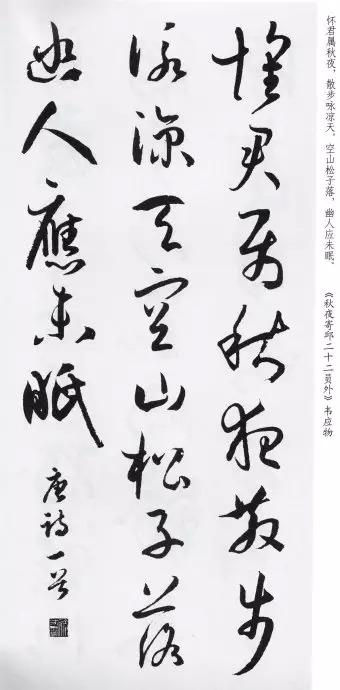 怀君属秋夜，散步咏凉天。空山松子落，幽人应未眠。
《秋夜寄邱二十二员外》韦应物
懷君属秋夜散步
詠涼天空山松子落
幽人應未眠
唐詩一首